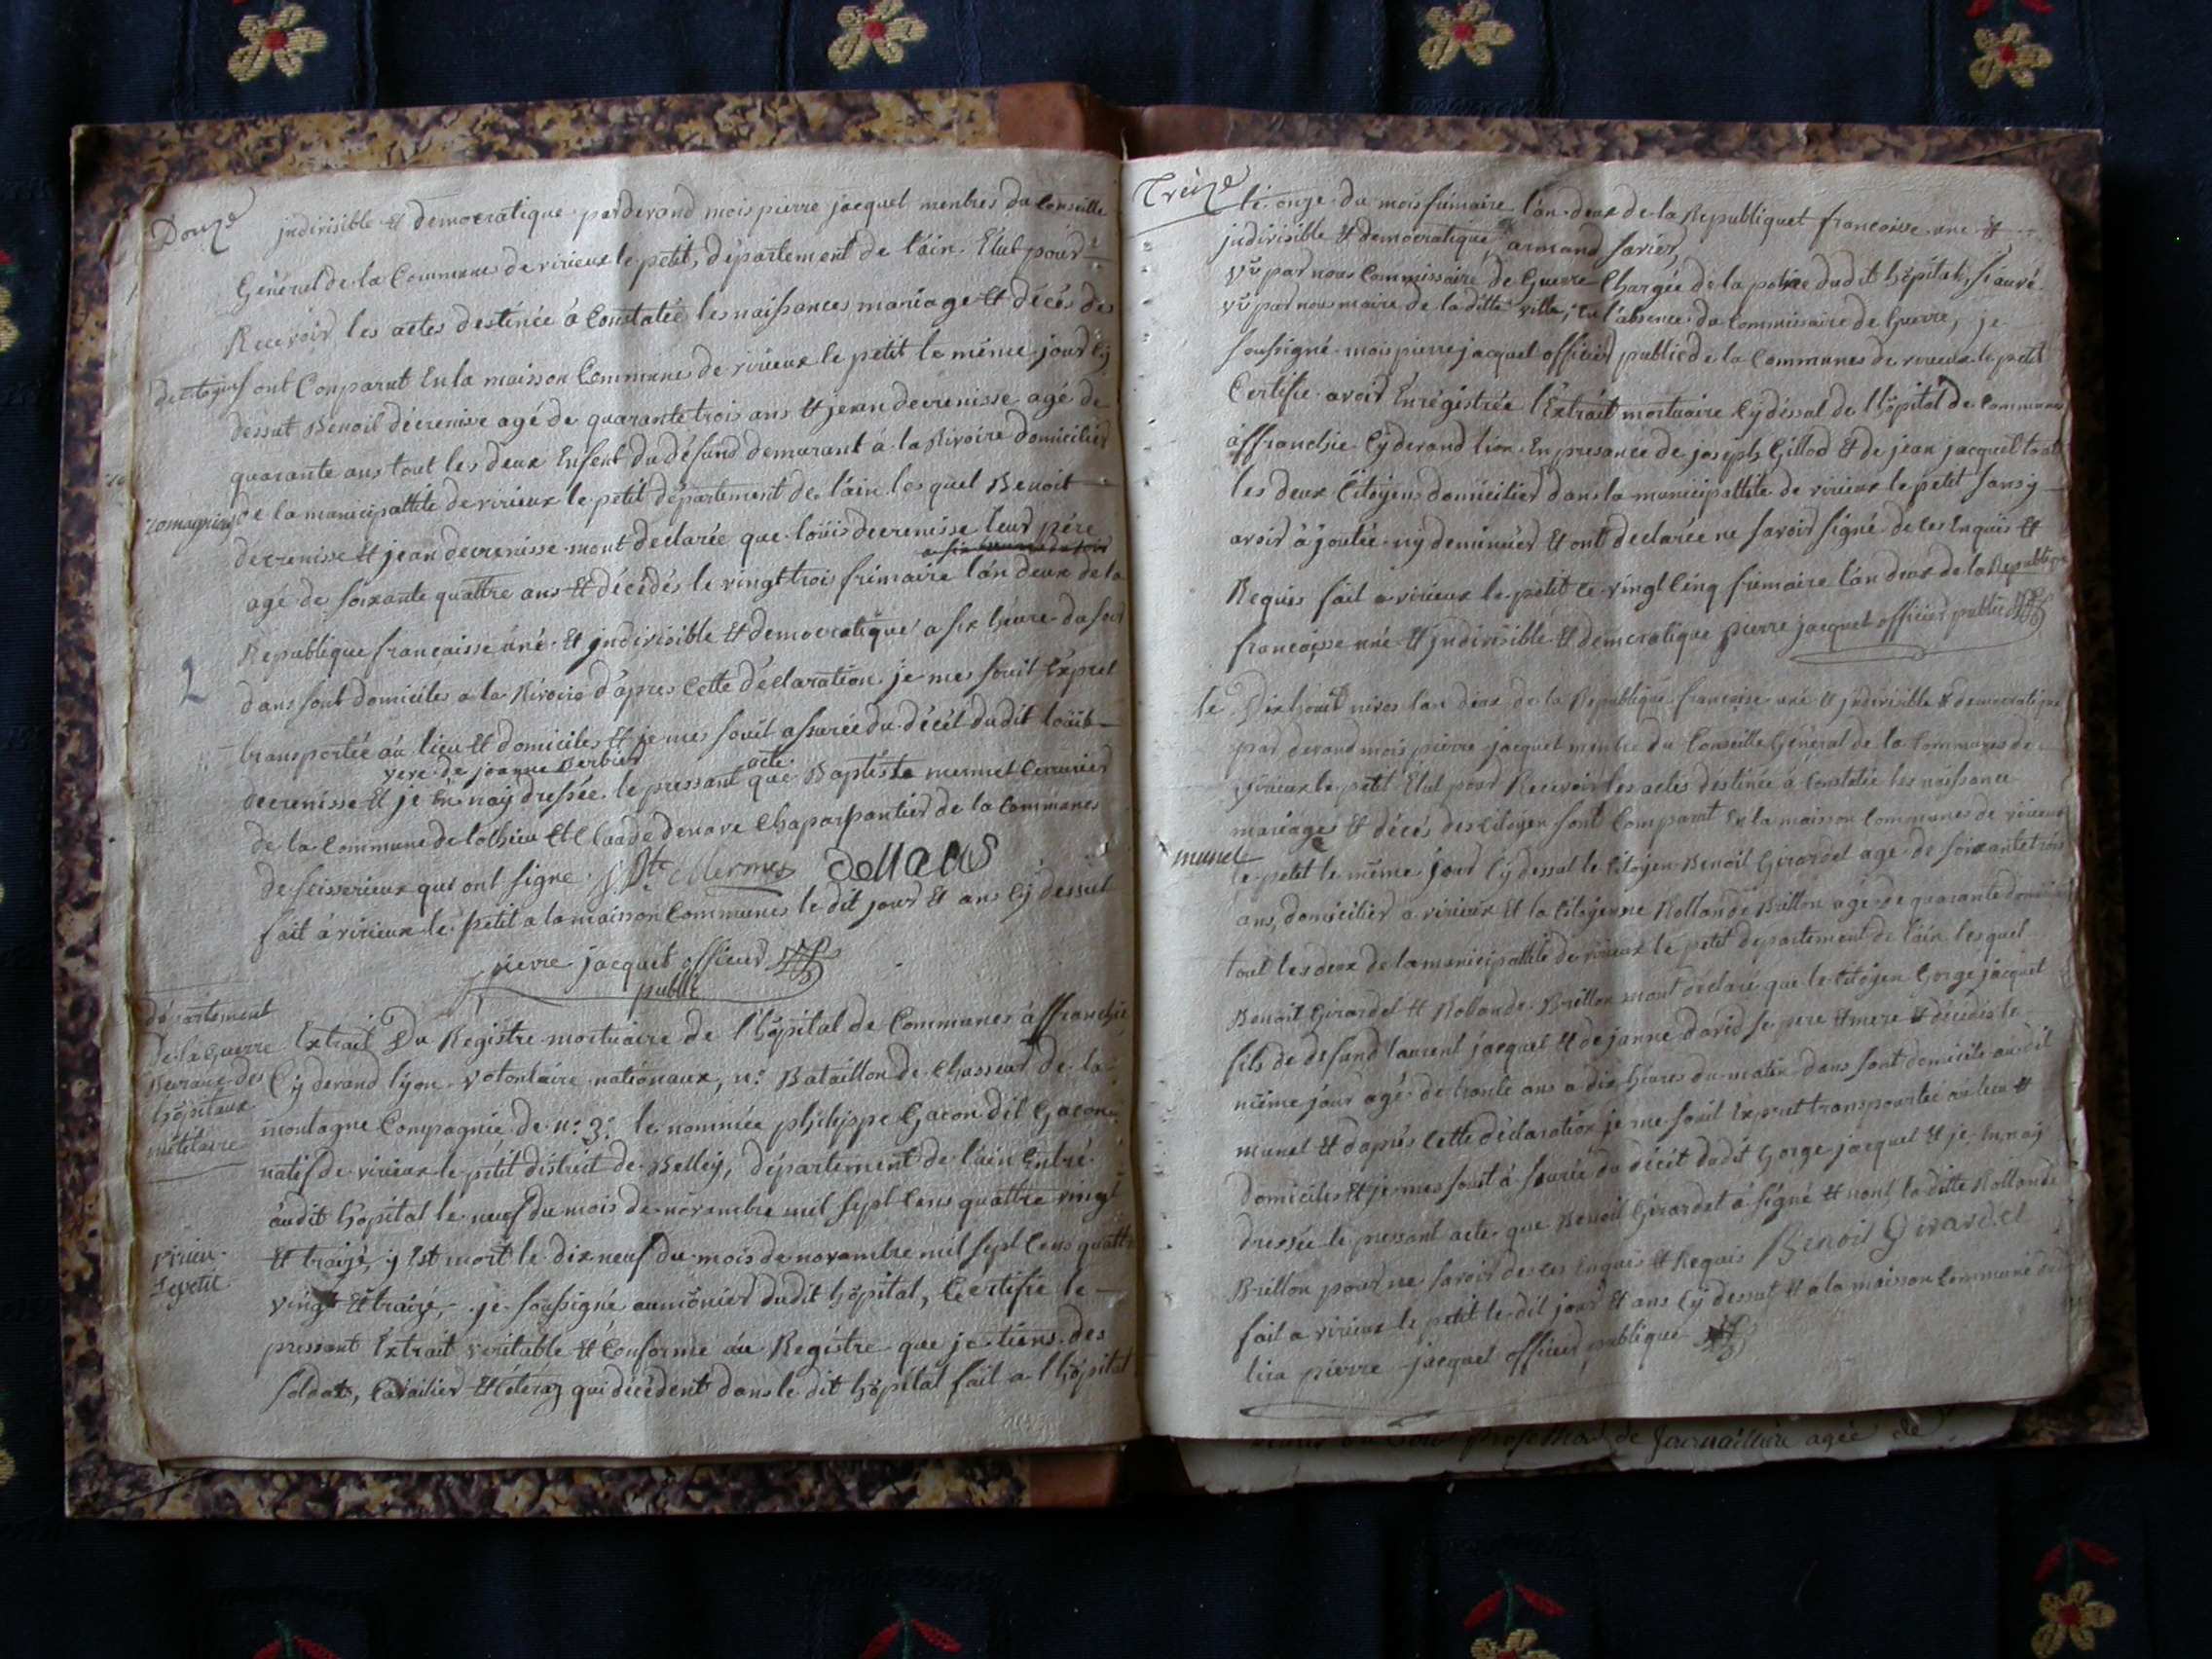 Douze
indivisible et democratique pardevand mois pierre jacquet menbres du Conseille
Général de la Communes de virieux le petit, département de l'ain Elut pour
Recevoir les actes destinée à Constatée les naissances mariage et décés des
citoyens ont Conparut En la maisson Communes de virieux le petit le même jour Cy
dessut Benoit décrenisse agé de quarante trois ans et jean decrenisse agé de
quarante ans tout les deux Enfent du défund demurant à la Rivoire domicilier
de la municipattité de virieux le petit département de l'ain lesquel Benoit
Zomagnieu
decrenisse et jean decrenisse mont declarée que loüis decrenisse leur pére
agé de soixante quattre ans et décédés le vingt trois frimaire l'án deux de la
Republique françaisse uné et jndivisible et democratique a six héure du soir
2
dans sont domiciles a la Rivoire d'apres Cette déclaration je mes souit Expret
transportée áu lieu et domiciles et je mes souit assurée du décét dudit loüit
veve de joanne Berbier acte
decrenisse et je En naÿ dressée le pressant que Baptiste mermet Cerrurier
de la Commune de lothieu et Claude denave Chaparpantier de la Communes
de seisserieux qui ont signe Bte Mermet
fait á virieux le petit a la maisson Communes le dit jour et ans Cÿ dessut
pierre jacquet officier
public
département
de la guerre
Bureaux des
hôpitaux
militaire
Extrait Du Registre mortuaire de l'hôpital de Communes áffranchie
Cÿ devand lÿon volontaire nationaux, n: Bataillon de Chasseur de la
montagne Compagnie de n: 3: le nommée philippe Gacon dit Gacon
natif de virieux le petit district de Belley, département de l'ain Entré
áudit hôpital le neuf du mois de novembre mil sept Cens quattre vingt
virieu
le petit
et traizé, y Est mort le dix neuf du mois de novembre mil sept Cens quattre
vingt et traizé, je soussigné aumônier dudit hôpital, Certifie le
pressant Extrait veritable et Conforme áu Registre que je tiens des
soldats, Cavailier et qui décédent dans le dit hôpital fait a l'hôpital
Treize
le onze du mois frimaire l'án deux de la Republiquet francoisse une et
jndivisible et democratique, armand
vû par nous Commissaire de Guerre Chargée de la police dudit hôpital,
vû par nous maire de la ditte ville, En l'absence du Commissaire de Guerre, je
soussigné mois pierre jacquet officier public de la Communes de virieux le petit
Certifie avoir Enrégistrée l'Extrait mortuaire Cÿ déssut de l'hôpital de Communes
áffranchie Cÿ devand lion En presance de joseph Gillod et de jean jacquet tout
les deux Citoyens domicilier dans la municipattité de virieux le petit sans ÿ
avoir á joutée ny deminuér et ont declarée ne savoir signé de ces Enquis et
Requis fait a virieux le petit ce vingt Cinq frimaire l'án deux de la Republique
francoisse uné et jndivisible et democratique pierre jacquet officier public
le Dix houit nivos lan deux de la Republique françoise uné et jndivisible et democratique
par devand mois pierre jacquet menbre du Conseille Général de la Communes de
virieux le petit Élut pour Recevoir les actes destinée á Constatée les naissance
mariage et décés des citoyen sont Comparut En la maisson Communes de virieux
munet
le petit le même jour Cÿ dessut le Citoyen Benoit Girardet agé de soixante trois
ans, domicilier a virieux et la Citoyenne Rollande Brillon agé de quarante
tout les deux de la municipattité de virieux le petit departement de l'ain lesquel
Benoit Girardet et Rollande Brillon mont déclaré que le Citoyen Gorge jacquet
fils de defund laurent jacquet et de janne david se pere et mere et décédés le
même jour agé de trante ans a dix héures du matin dans sont domicile audit
munet et d'aprés Cette déclaration je me souit Expret transportée au lieu et
domiciles et je mes souit á ssurée du décét dudit Gorge jacquet et je En naÿ
dressée le pressant acte que Benoit Girardet á signé et nont la ditte Rollande
Brillon pour ne savoir de ces Enquis et Requis Benoit Girardet
fait a virieux le petit le dit jour et ans Cÿ dessut et a la maisson Commune
lieu pierre jacquet officier publique
de agée de